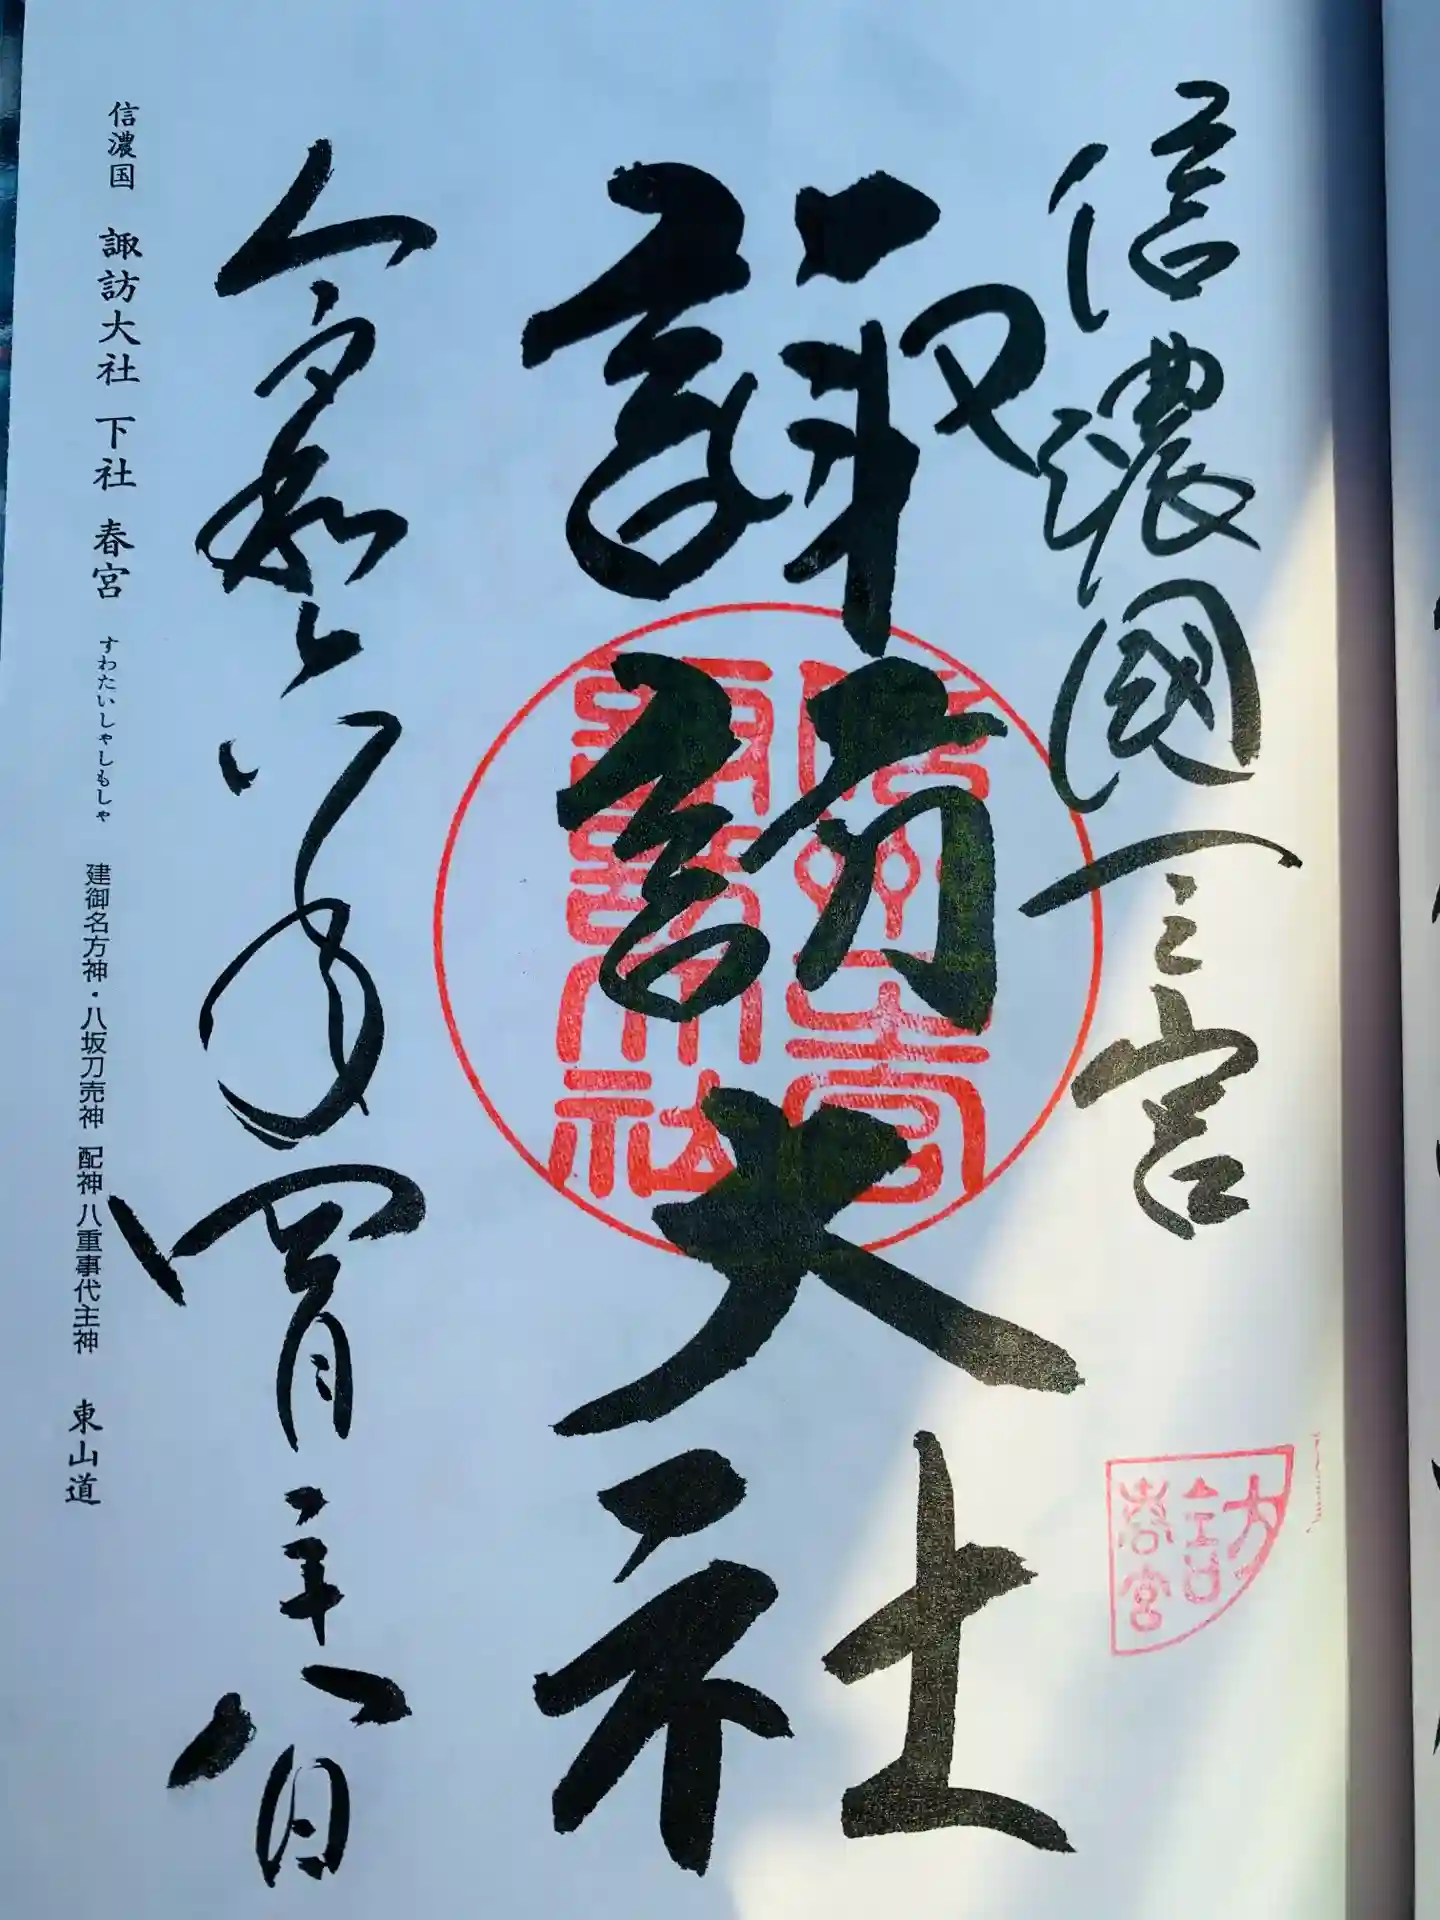 信濃國一之宮
訪
春宮
諏訪大社
諏訪大社
令和六年四月二十八日
信濃国 諏訪大社 下社 春宮 すわたいしゃしもしゃ 建御名方神・八坂刀売神 配神 八重事代主神 東山道